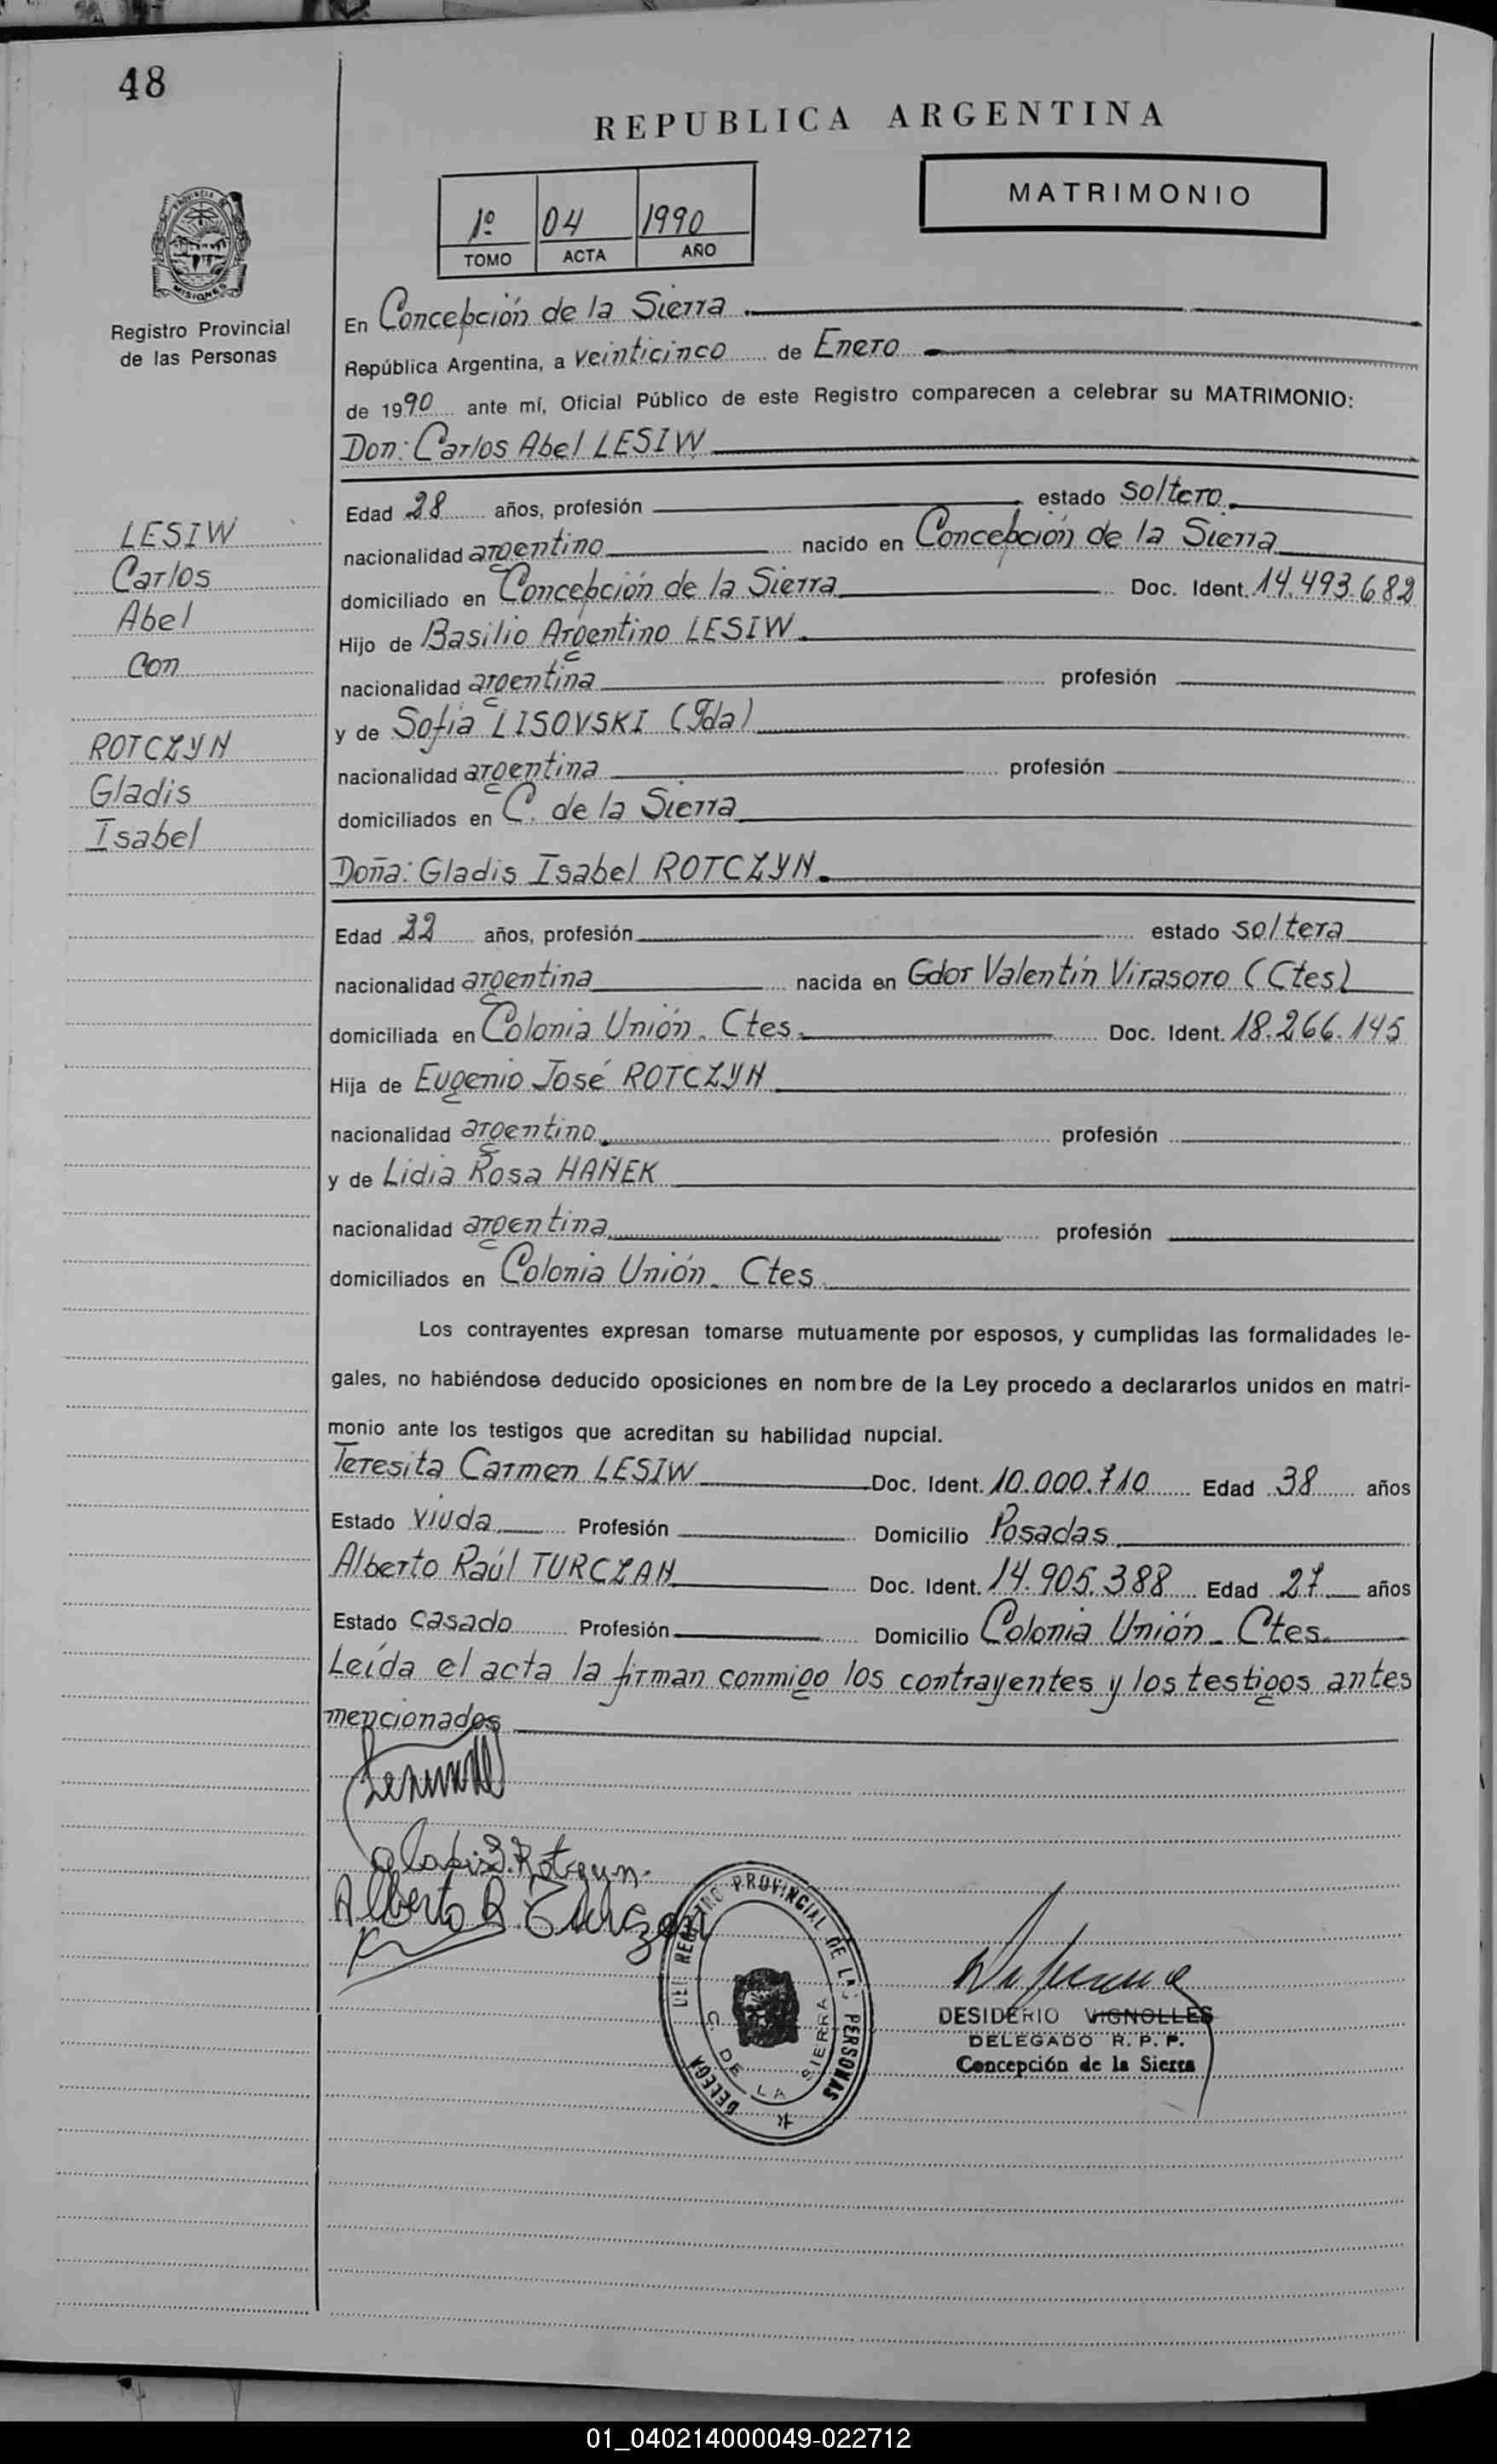 48
REPUBLICA ARGENTINA
MATRIMONIO
1º 04 1990
TOMO ACTA AÑO
PROVINCIA DE
MISIONES
Registro Provincial
de las Personas
En Concepción de la Sierra
República Argentina, a veinticinco de Enero
de 1990 ante mí, Oficial Público de este Registro comparecen a celebrar su MATRIMONIO:
Don: Carlos Abel LESIW
Edad 28 años, profesión estado soltero
nacionalidad argentino nacido en Concepción de la Sierra
domiciliado en Concepción de la Sierra Doc. Ident. 14.493.682
Hijo de Basilio Argentino LESIW
nacionalidad argentina profesión
y de Sofia LISOVSKI (Fda)
nacionalidad argentina profesión
domiciliados en C. de la Sierra
LESIW
Carlos
Abel
Con
ROTCZYN
Gladis
Isabel
Doña: Gladis Isabel ROTCZYN.
Edad 22 años, profesión estado soltera
nacionalidad argentina nacida en Gdor Valentín Virasoro (Ctes)
domiciliada en Colonia Unión. Ctes. Doc. Ident. 18.266.145
Hija de Eugenio José ROTCZYN
nacionalidad argentino profesión
y de Lidia Rosa HAÑEK
nacionalidad argentina profesión
domiciliados en Colonia Unión. Ctes
Los contrayentes expresan tomarse mutuamente por esposos, y cumplidas las formalidades le-
gales, no habiéndose deducido oposiciones en nombre de la Ley procedo a declararlos unidos en matri-
monio ante los testigos que acreditan su habilidad nupcial.
Teresita Carmen LESIW Doc. Ident. 10.000.710 Edad 38 años
Estado viuda Profesión Domicilio Posadas
Alberto Raúl TURCZAN Doc. Ident. 14.905.388 Edad 27 años
Estado casado Profesión Domicilio Colonia Unión - Ctes.
Leída el acta la firman conmigo los contrayentes y los testigos antes
mencionados
Gladis I. Rotczyn.
Alberto R. Turczan
DEL REGISTRO PROVINCIAL DE LAS PERSONAS
DELEGA
C. DE LA SIERRA
DESIDERIO VIGNOLLES
DELEGADO R. P. P.
Concepción de la Sierra
01_040214000049-022712